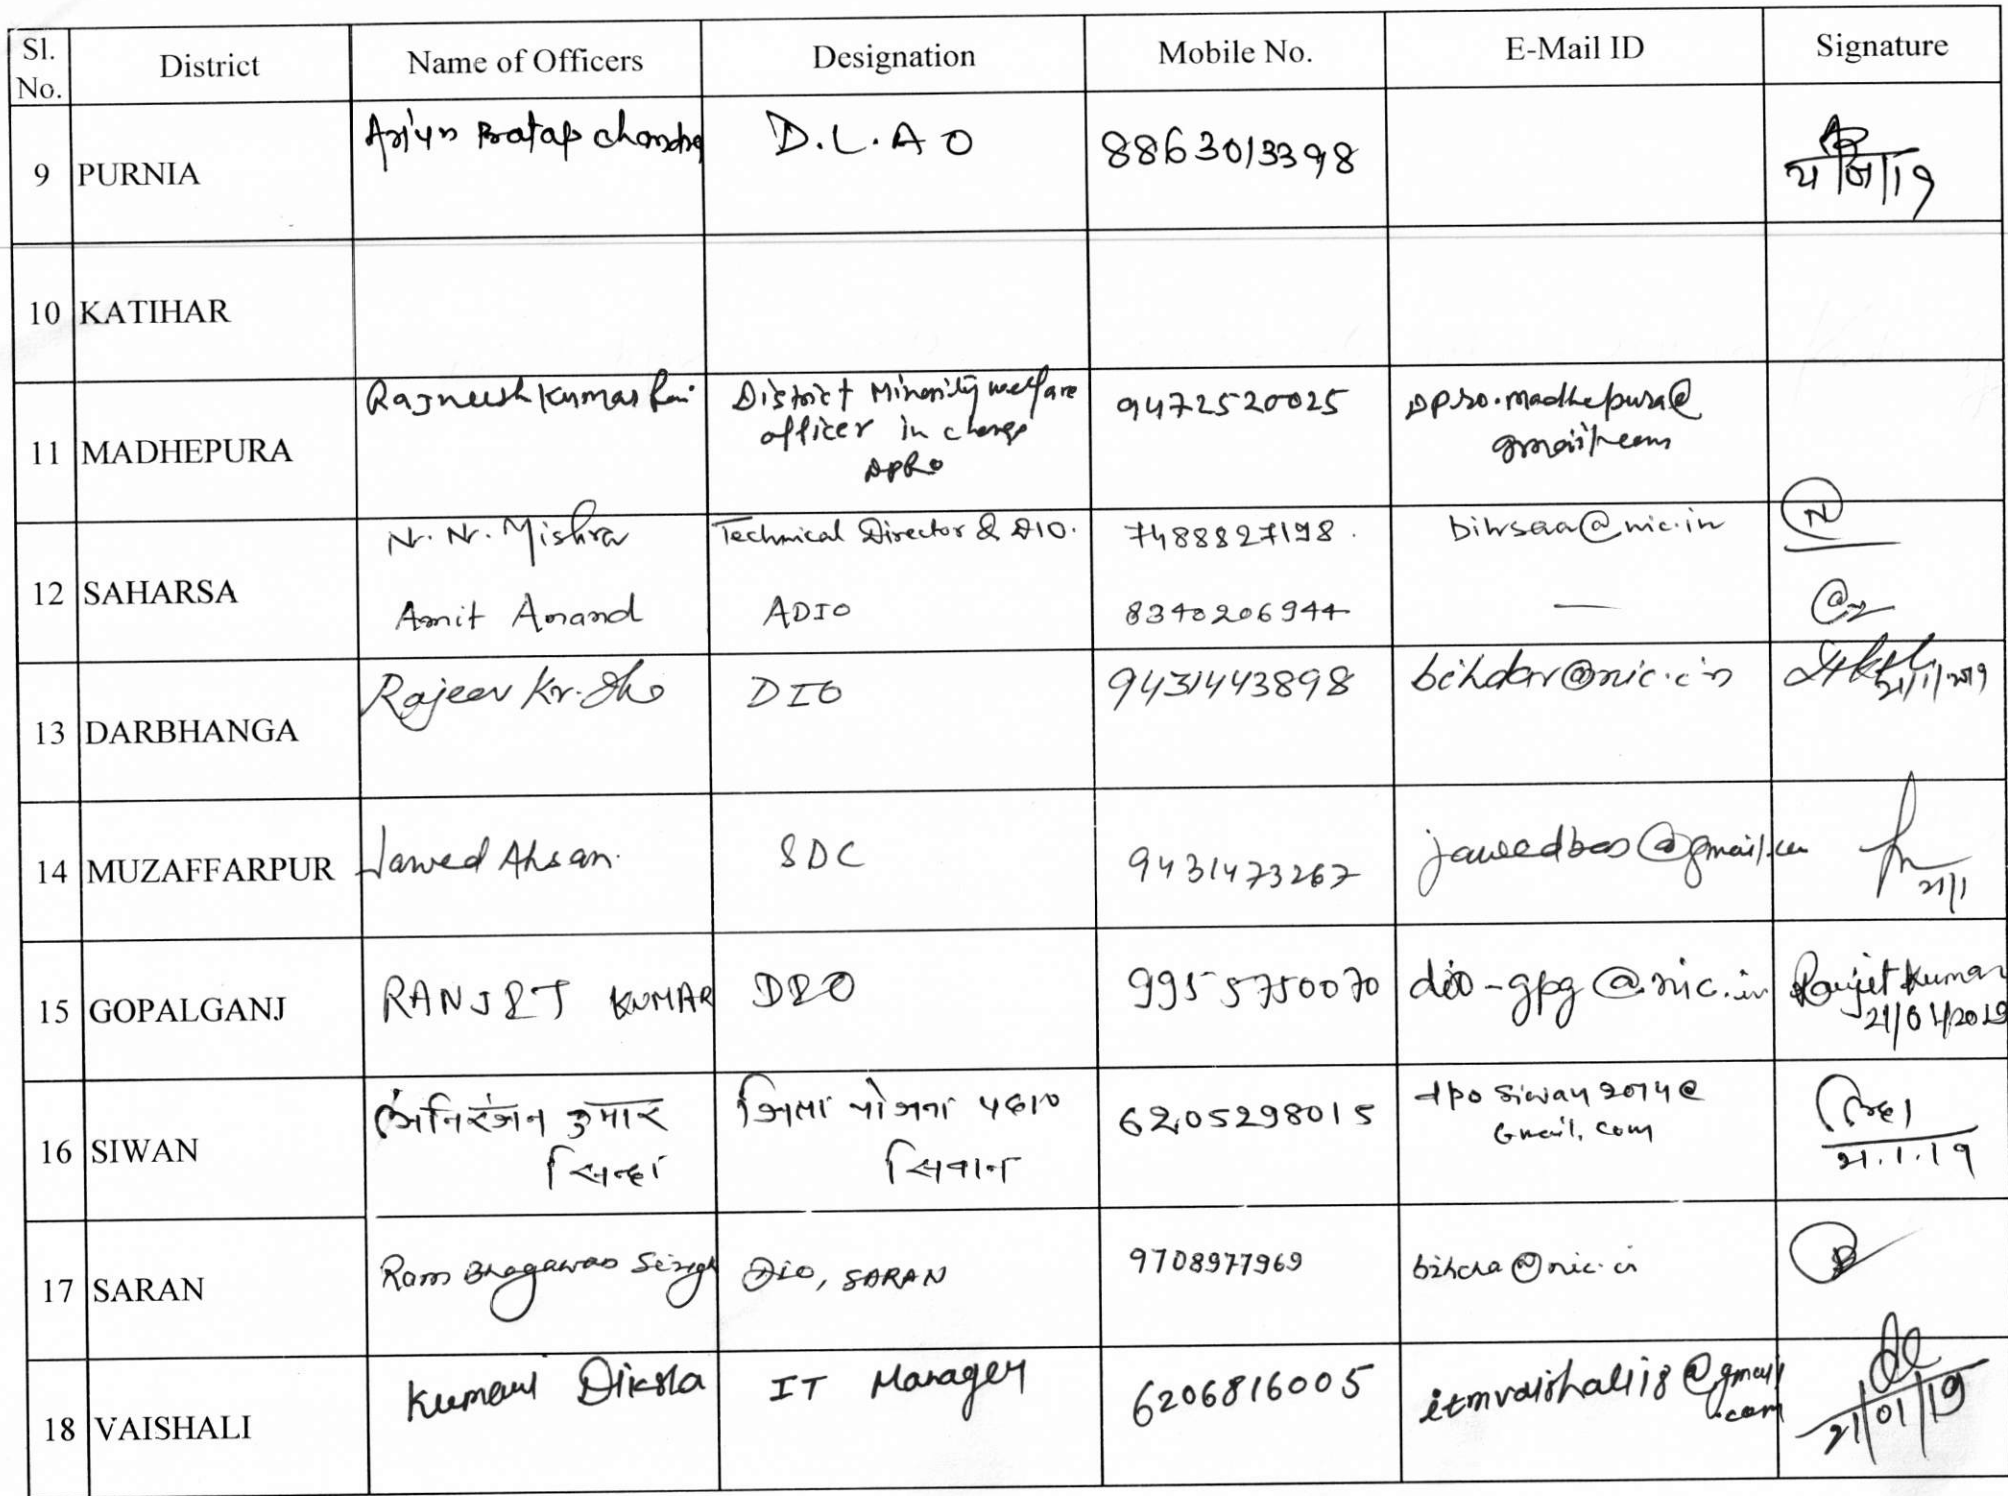 Sl. No. District Name of Officers Designation Mobile No. E-Mail ID Signature
9 PURNIA Arjun Pratap Chandra D.L.A.O 8863013398
10 KATIHAR
11 MADHEPURA Rajneesh Kumar Rai District Minority welfare 9472520025 dpro.madhepura@
officer in charge
DPRO
12 SAHARSA N. N. Mishra Technical Director & DIO. 7488827198. bihsaa@nic.in
Amit Anand ADIO 8340206944 —
13 DARBHANGA Rajeev Kr. Jha DIO 9431443898 bihdar@nic.in 21/1/2019
14 MUZAFFARPUR Jawed Ahsan. SDC 9431473267 21/1
15 GOPALGANJ RANJIT KUMAR DIO 9955750070 dio-gpg@nic.in Ranjit Kumar
21/01/2019
16 SIWAN निरंजन कुमार जिला योजना पदा० 6205298015 dposiwan2014@
सिन्हा सिवान Gmail.com 21.1.19
17 SARAN Ram Bhagawan Singh DIO, SARAN 9708977969
18 VAISHALI Kumari Diksha IT Manager 6206816005 itmvaishali18@gmail
.com 21/01/19